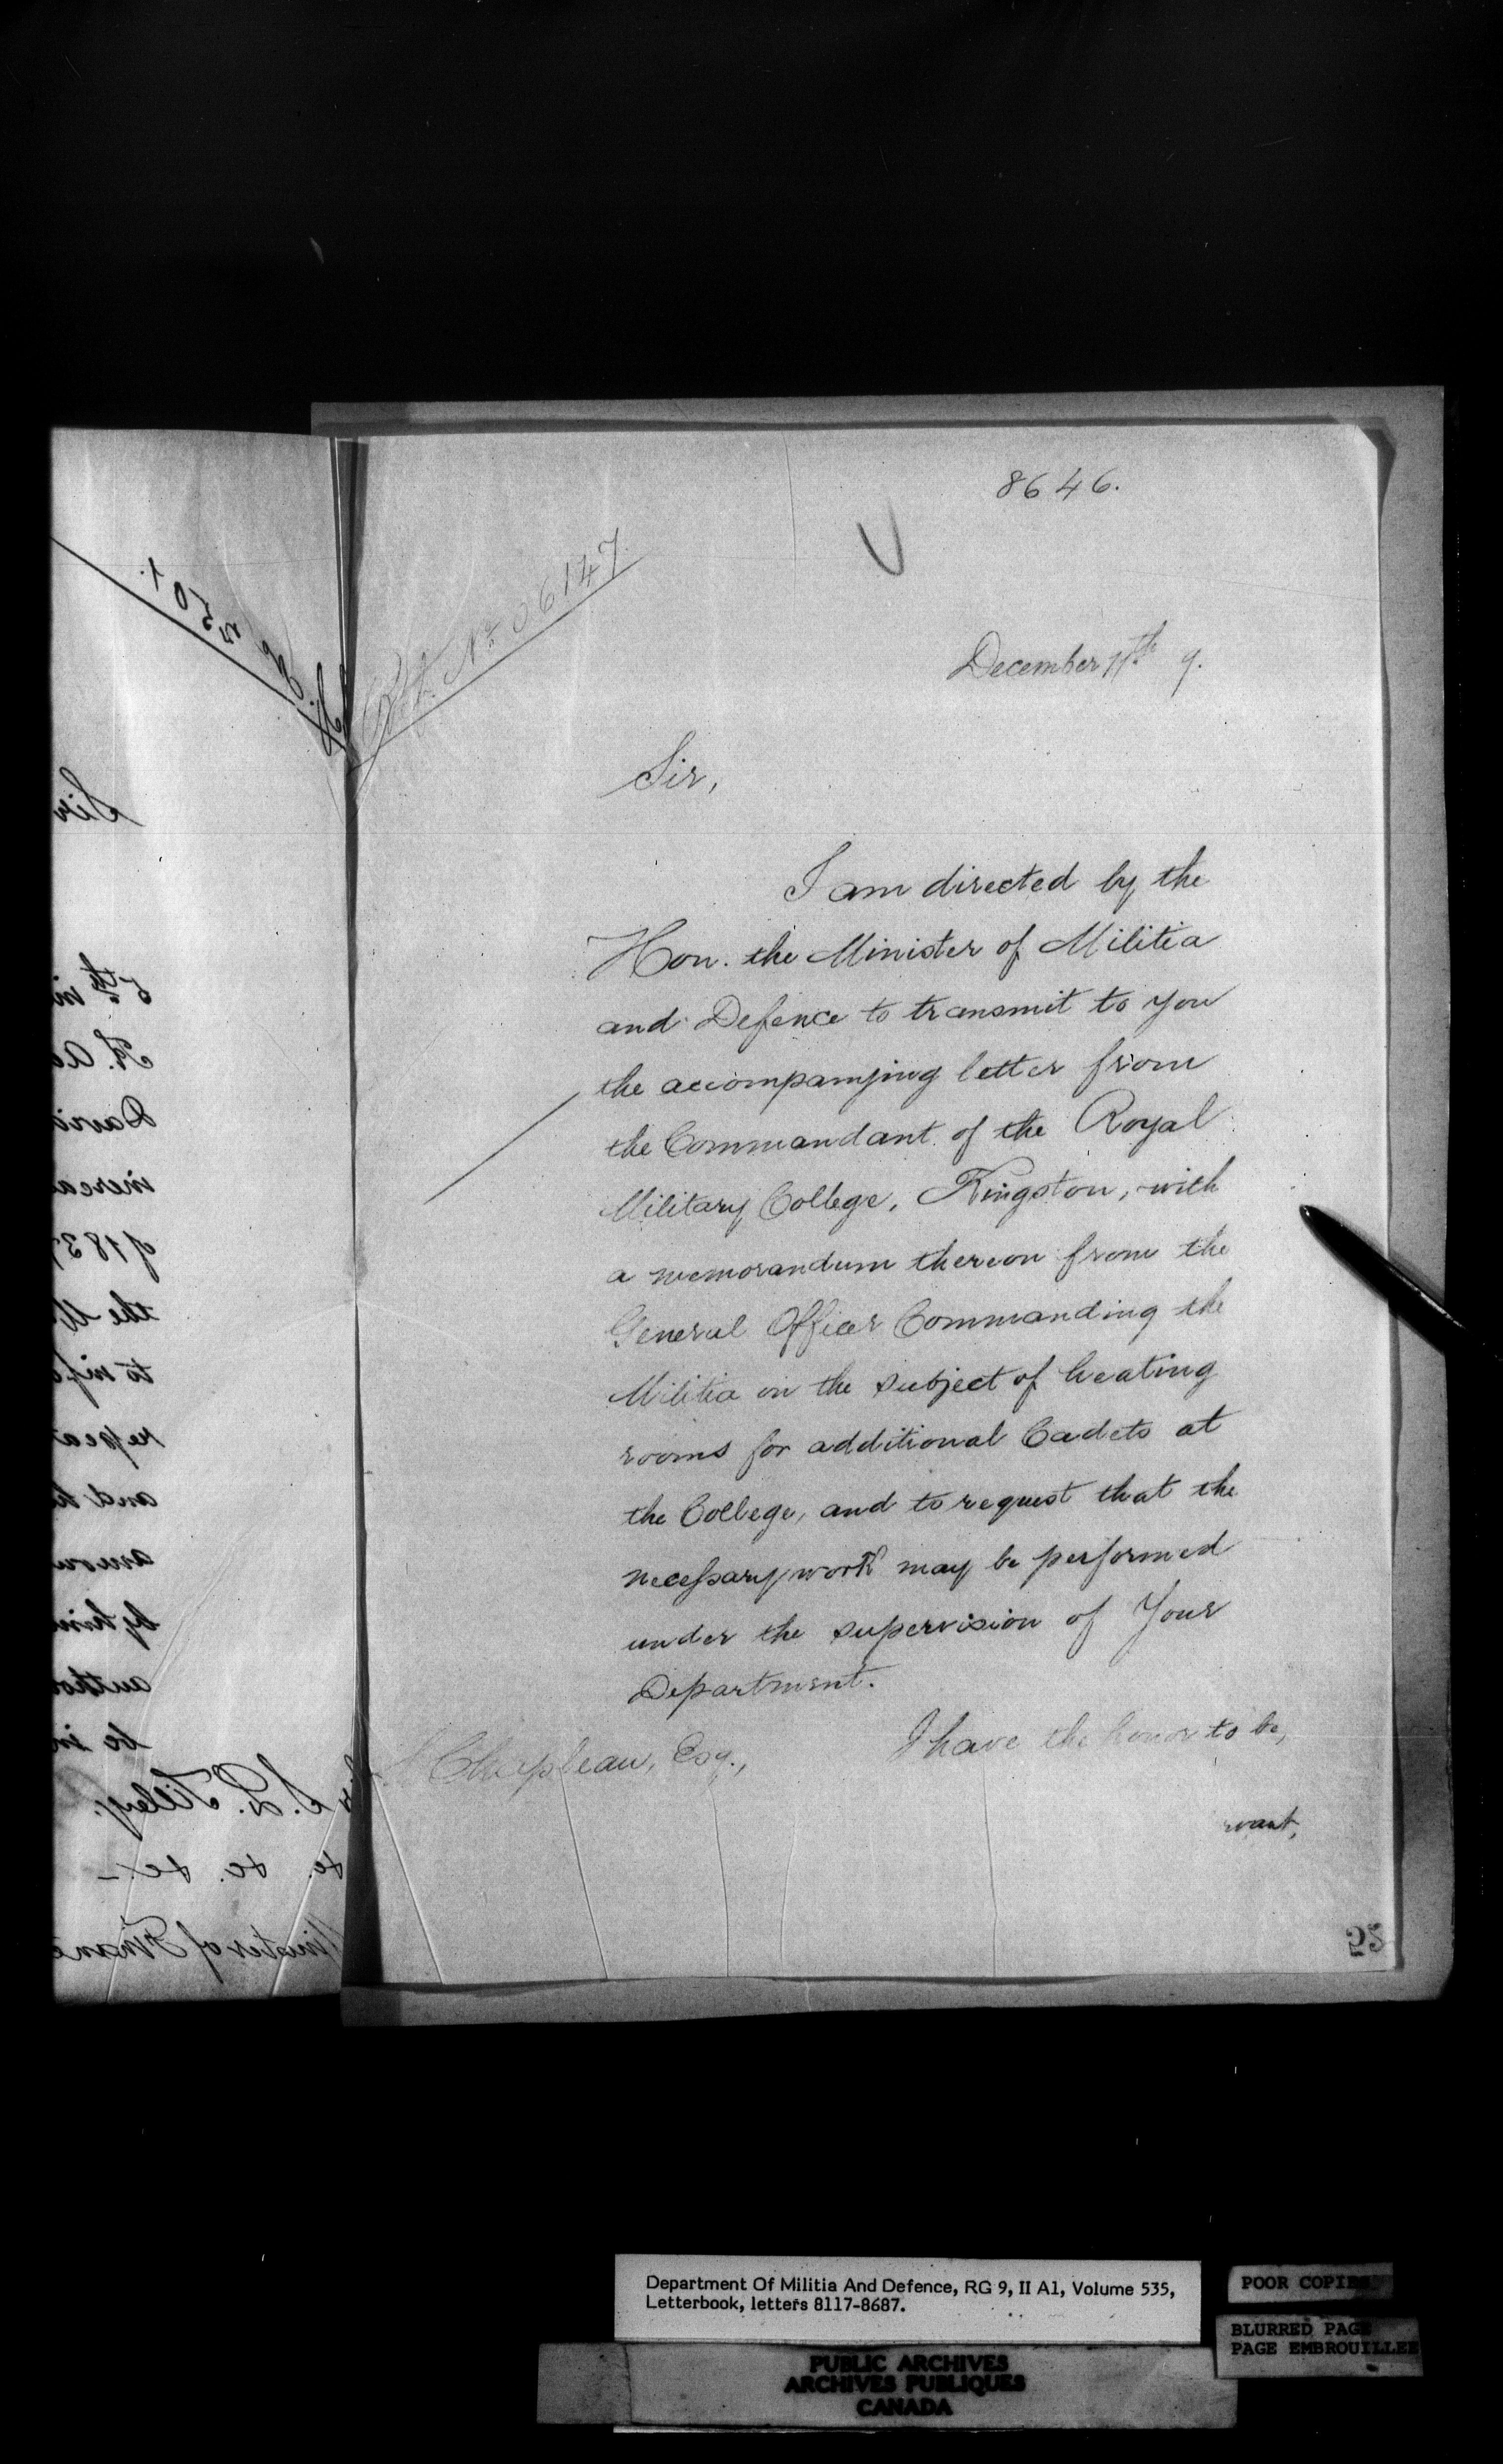 8646.
Ref. No 06147
December 11th 9.
Sir,
I am directed by the
Hon. the Minister of Militia
and Defence to transmit to you
the accompanying letter from
the Commandant of the Royal
Military College, Kingston, with
a memorandum thereon from the
General Officer Commanding the
Militia on the subject of heating
rooms for additional Cadets at
the College, and to request that the
necessary work may be performed
under the supervision of Your
Department.
I have the honor to be,
Chapleau, Esq.,
Sir
5th
David
the
to
and
be in
S. L. Tilley,
&c. &c. &c.
Minister of Finance
Department Of Militia And Defence, RG 9, II A1, Volume 535,
Letterbook, letters 8117-8687.
POOR COPIES
BLURRED PAGE
PAGE EMBROUILLEE
PUBLIC ARCHIVES
ARCHIVES PUBLIQUES
CANADA